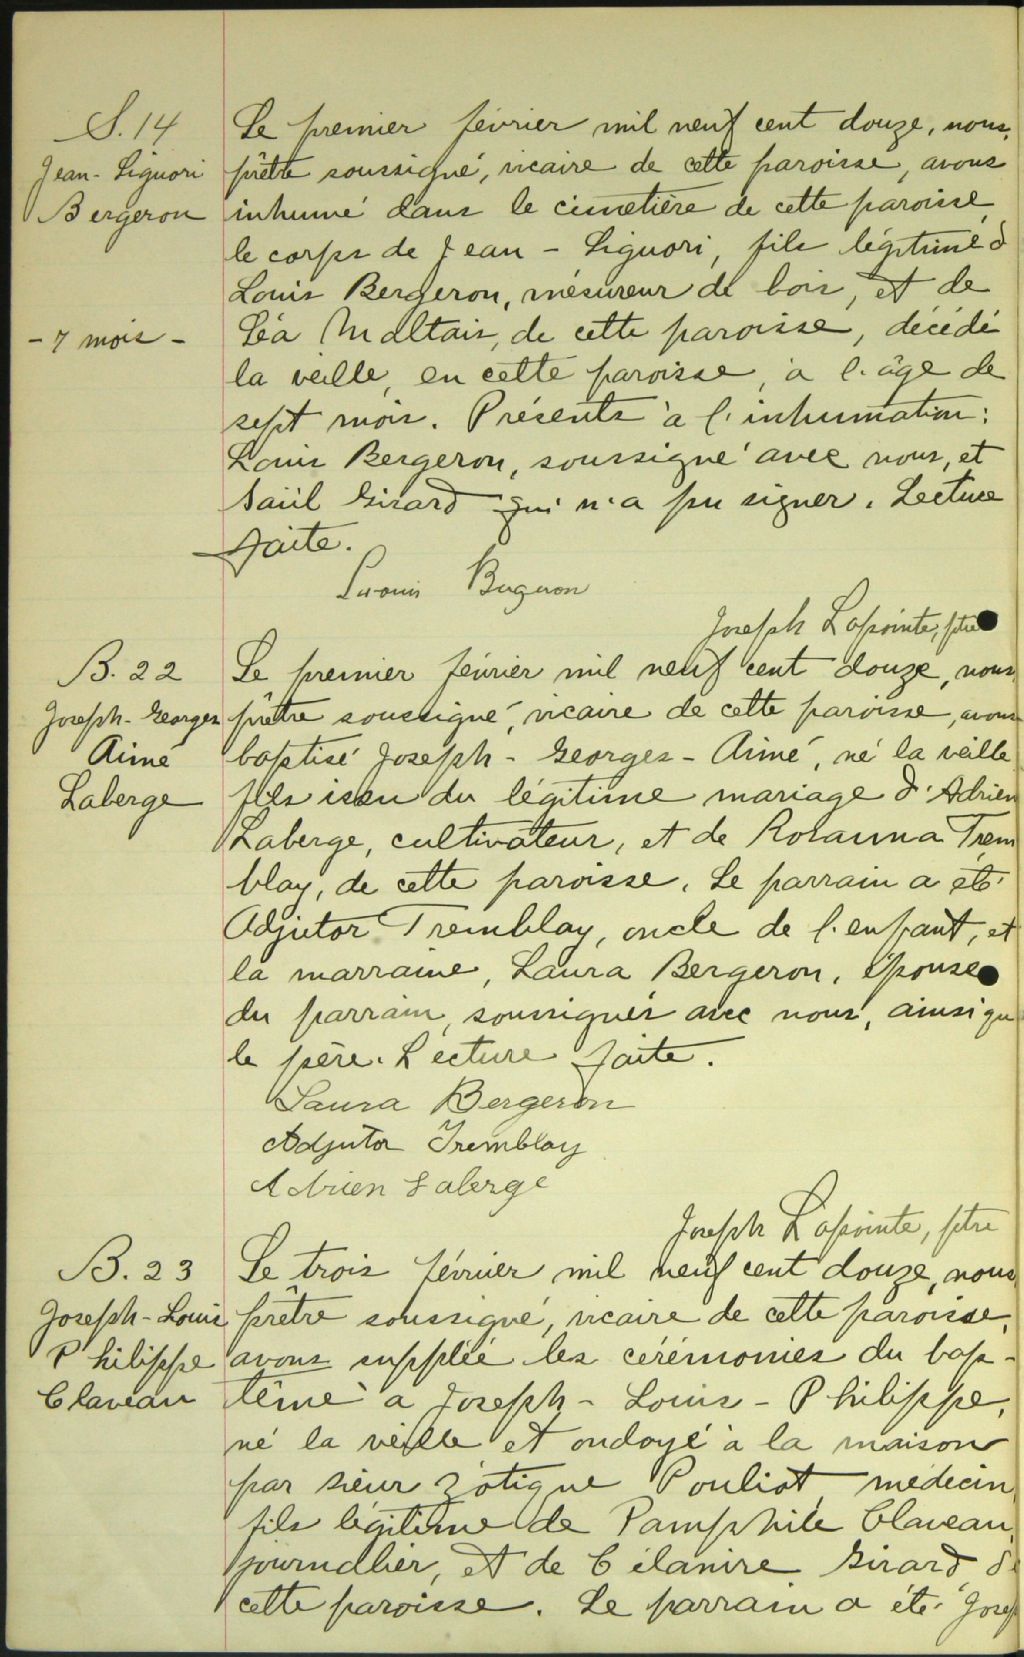 S. 14
Jean-Liguori
Bergeron
- 7 mois -
Le premier février mil neuf cent douze, nous,
prêtre soussigné, vicaire de cette paroisse, avons
inhumé dans le cimetière de cette paroisse,
le corps de Jean-Liguori, fils légitime d
Louis Bergeron, mesureur de bois, et de
Léa Maltais, de cette paroisse, décédé
la veille, en cette paroisse, à l'âge de
sept mois. Présents à l'inhumation:
Louis Bergeron, soussigné avec nous, et
Saül Girard qui n'a pu signer. Lecture
faite.
Bergeron
Joseph Lapointe, ptre
B. 22
Joseph-Georges
Aimé
Laberge
Le premier février mil neuf cent douze, nous
prêtre soussigné, vicaire de cette paroisse, avons
baptisé Joseph-Georges-Aimé, né la veille
fils issu du légitime mariage d'Adrien
Laberge, cultivateur, et de Rosanna Trem
blay, de cette paroisse. Le parrain a été
Adjutor Tremblay, oncle de l'enfant, et
la marraine, Laura Bergeron, épouse
du parrain, soussignés avec nous, ainsi qu
le père. Lecture faite.
Laura Bergeron
Adjutor Tremblay
Adrien Laberge
Joseph Lapointe, ptre
B. 23
Joseph-Louis
Philippe
Claveau
Le trois février mil neuf cent douze, nous
prêtre soussigné, vicaire de cette paroisse,
avons suppléé les cérémonies du bap-
tême à Joseph-Louis-Philippe,
né la veille et ondoyé à la maison
par sieur Zotique Pouliot, médecin,
fils légitime de Pamphile Claveau,
journalier, et de Célanire Girard, de
cette paroisse. Le parrain a été Josep